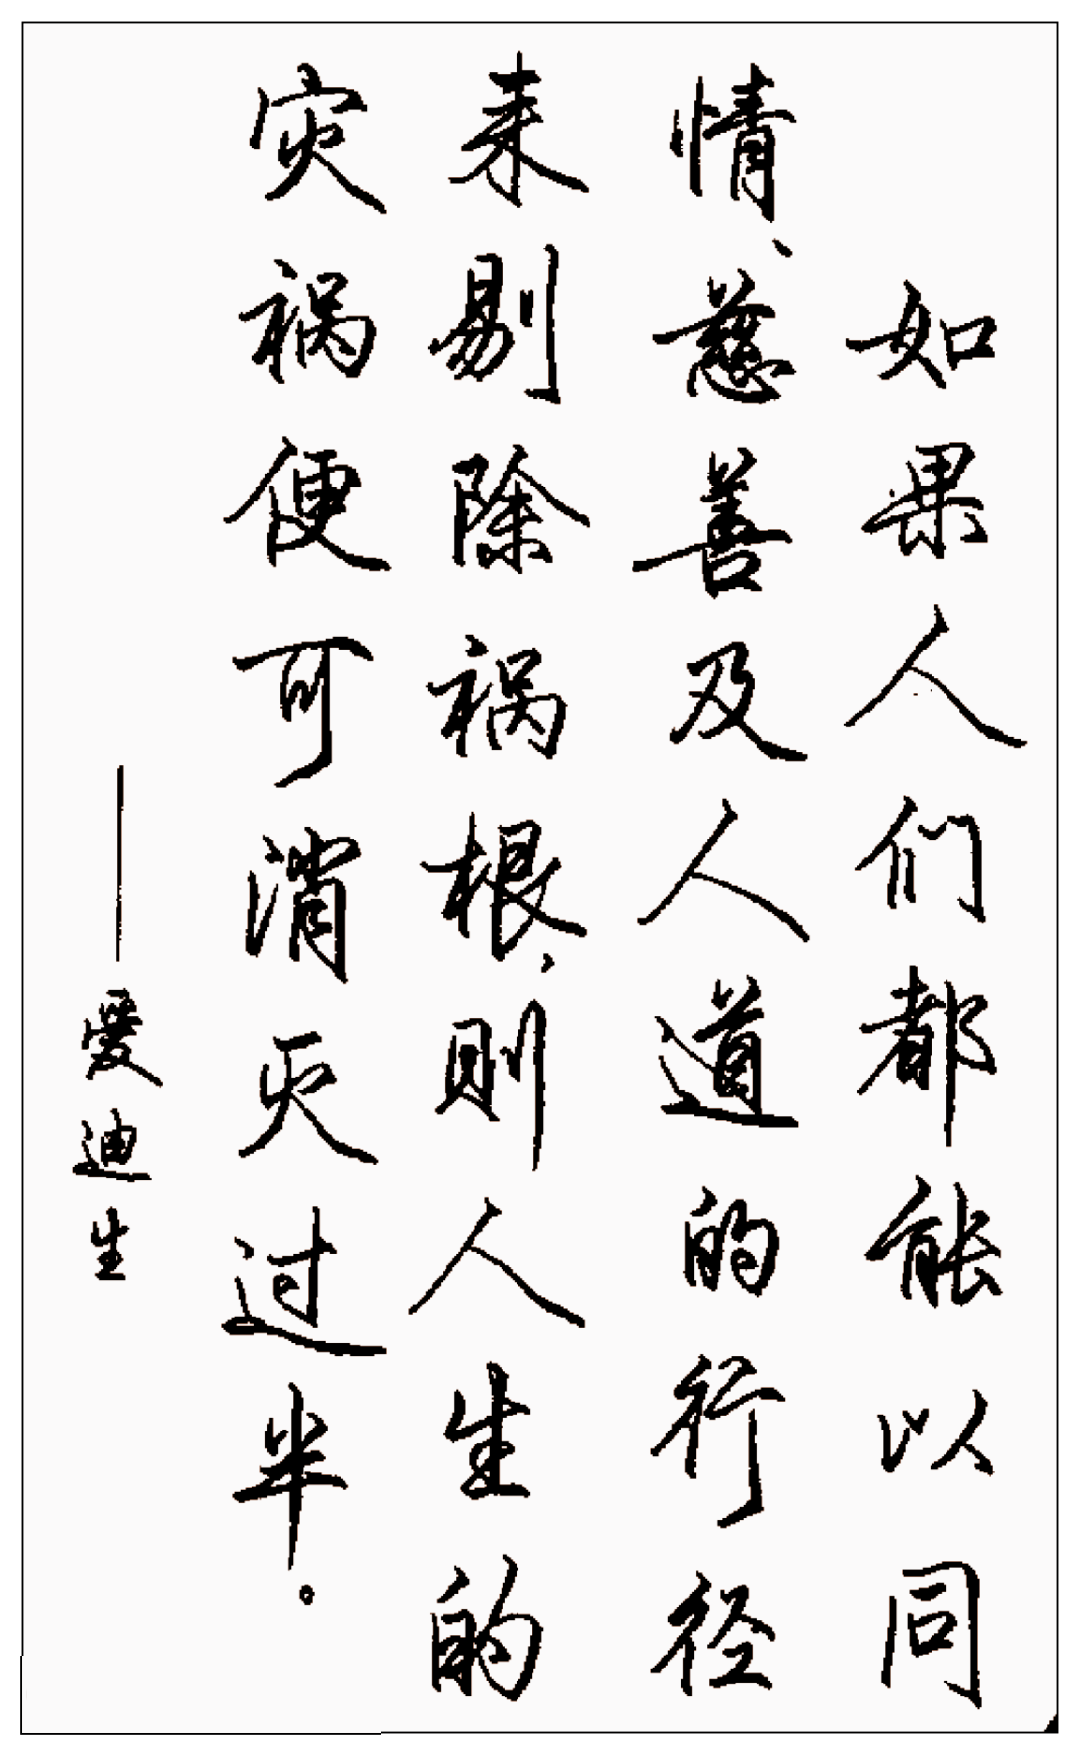 如果人们都能以同
情、慈善及人人道的行径
来剔除祸根，则人生的
灾祸便可消灭过半。
——爱迪生